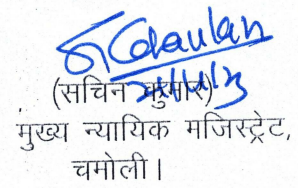 (सचिन कुमार)
मुख्य न्यायिक मजिस्ट्रेट,
चमोली।